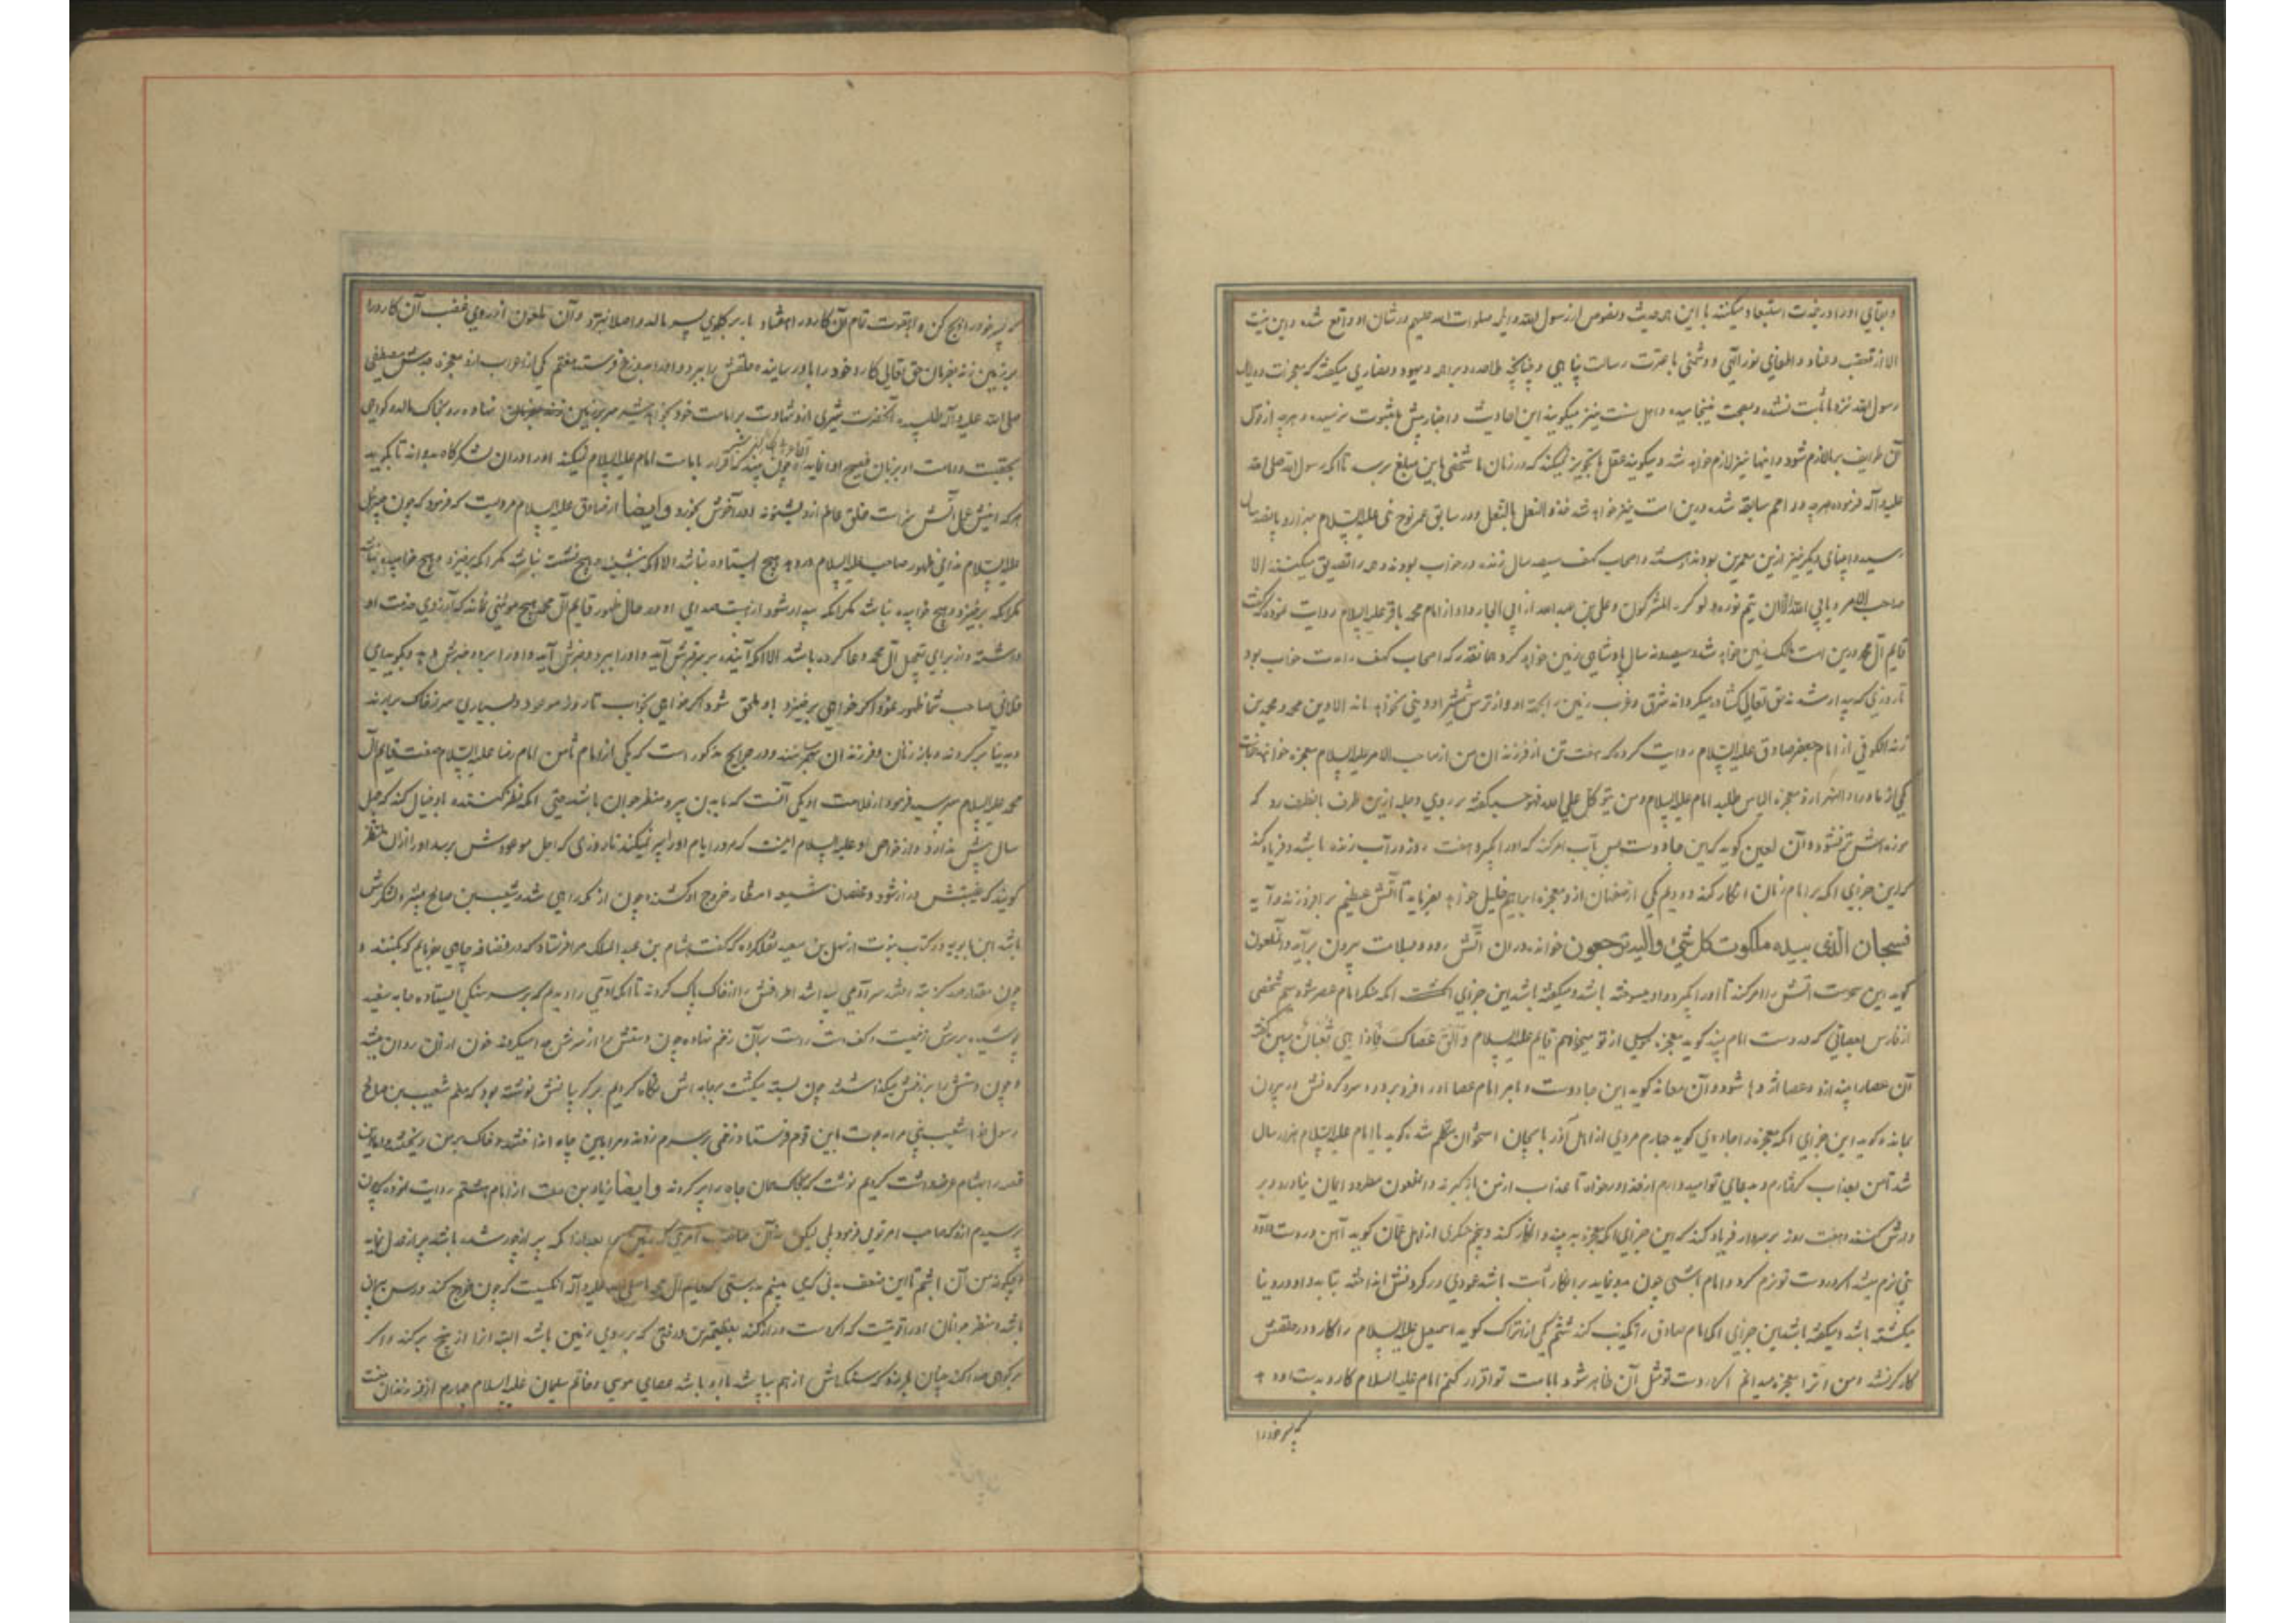 و بقای او را درین مدت استبعاد میکنند با این همه حدیث و نصوص از رسول الله و ائمه صلوات الله علیهم در شان او واقع شده و این نیست
الا از تعصب و عناد و اطفای نور الهی و دشمنی با حضرت رسالت پناهی و چنانچه ملاحده و براهمه و یهود و نصاری میگفتند که معجزات و دلایل
رسول الله نزد ما ثابت نشده و بصحت نینجامیده و اهل سنت نیز میگویند این احادیث و اخبار پیش ما بثبوت نرسیده و هرچه از قول
آن طوایف برما لازم شود و اینها نیز لازم خواهد شد و میگویند عقل ما تجویز نمیکند که در زمان ما شخصی باین مبلغ برسد تا آنکه رسول الله صلی الله
علیه و آله فرموده هرچه در امم سابقه شده درین امت نیز خواهد شد حذو النعل بالنعل و در سابق عمر نوح نبی علیه السلام بهزار و پانصد سال
رسیده و انبیای دیگر نیز ازین معمرین بوده‌اند و اصحاب کهف سیصد سال زنده در خواب بودند و همه را تصدیق میکنند الا
صاحب الامر و یابی الله الا ان یتم نوره ولو کره المشرکون و علی بن عبد الله از ابی الجارود از امام محمد باقر علیه السلام روایت نموده که گفت
قایم آل محمد درین امت مالک زمین خواهد شد و سیصد و نه سال پادشاهی زمین خواهد کرد همانقدر که اصحاب کهف را مدت خواب بود
تا روزی که بیدار شدند حق تعالی گشاده میگرداند شرق و غرب زمین را بجهة او و از ترس شمشیر او دینی نخواهد ماند الا دین محمد و محمد بن
زید الکوفی از امام جعفر صادق علیه السلام روایت کرده که هفت تن از فرزندان من از صاحب الامر علیه السلام معجزه خواهند خواست
یکی از ماوراء النهر از او معجزه الیاس طلبد امام علیه السلام و من یتوکل علی الله فهو حسبه گفته بر روی دجله ازین طرف بانطرف رود که
موزه‌اش تر نشود و آن لعین گوید که این جادوست پس آب امر کند که او را بگیرد هفت روز در آب زنده باشد و فریاد کند
که این جزای آنکه بر امام زمان انکار کند و دویم یکی از صفهان از او معجزه ابراهیم خلیل خواهد بفرماید تا آتش عظیم بر افروزند و آیه
فسبحان الذی بیده ملکوت کل شیء والیه ترجعون خوانده در ان آتش رود و بسلامت بیرون برآید و آن ملعون
گوید این سحرست آتش را امر کند تا او را بگیرد و او میسوخته باشد و میگفته باشد این جزای آنکه منکر امام عصر شود سیم شخصی
از فارس عصائی که در دست امام بیند گوید معجزه موسی از تو میخواهم قایم علیه السلام و الق عصاک فاذا هی ثعبان مبین گفته
آن عصا را بیندازد و عصا اژدها شود و آن معاند گوید این جادوست و بامر امام عصا او را فرو برد و سر و گردنش در بیرون
بماند و گوید این جزای آنکه معجزه را جادوی گوید چهارم مردی از اهل آذربایجان استخوان متکلم شده گوید یا امام علیه السلام هزار سال
شد تا من بعذاب گرفتارم و بدعای تو امیدوارم از خداوند بخواه تا عذاب از من بازگیرند و آن ملعون مطرود ایمان نیاورد و بر
دارش کنند و هفت روز بر سر دار فریاد کند که این جزای آنکه معجزه ببیند و انکار کند و پنجم منکری از اهل عمان گوید آهن در دست داود
نبی نرم میشد اگر در دست تو نرم گردد امام باشی چون بنماید بر انکار ثابت باشد عمودی در گردنش انداخته بتابد و او در دنیا
میگشته باشد و میگفته باشد این جزای آنکه امام صادق را تکذیب کند ششم یکی از اتراک گوید اسمعیل علیه السلام را کارد در حلقش
کار کر نشد و من آنرا معجزه میدانم اگر در دست تو مثل آن ظاهر شود بامامت تو اقرار کنم امام علیه السلام کارد بدست او دهد
که پسر خود را
که پسر خود را ذبح کن و او بقوت تمام آن کارد را هفتاد بار بر گلوی پسر مالد و اصلا نبرد و آن ملعون از روی غضب آن کارد را
بر زمین زند بفرمان حق تعالی کارد خود را باو رسانیده حلقش را ببرد و او را بدوزخ فرستد هفتم یکی از اعراب از او معجزه جدش مصطفی
صلی الله علیه و آله طلبیده آنحضرت شیری را از و شهادت بر امامت خود بخواهد شیر سر بر زمین نهاده رو بخاک مالد و گواهی
بحقیت و امامت او بزبان فصیح ادا نماید و چون بیند که اقرار بامامت امام علیه السلام نمیکند او را در ان لشکرگاه بدواند تا بگوید
هر که اینش عمل آتش سزاست خلق عالم از و بشنوند او را آخرش بخورد و ایضا از صادق علیه السلام مرویست که فرمود که چون جبرئیل
علیه السلام ندای ظهور صاحب علیه السلام در دهد هیچ ایستاده نباشد الا آنکه بنشیند و هیچ نشسته نباشد مگر آنکه برخیزد و هیچ خوابیده نباشد
مگر آنکه برخیزد و هیچ خوابیده نباشد مگر آنکه بیدار شود از هیبت صدای او و در حال ظهور قایم آل محمد هیچ مومنی نماند که آرزوی خدمت او
داشته و از برای تعجیل آل محمد دعا کرده باشد الا آنکه آینده بر سر قبرش آید و او را ببرد و خبرش دهد و بگوید ای
فلانی صاحب شما ظهور نمود اگر خواهی برخیزد باو ملحق شود اگر خواهی بخواب تا روز موعود و بسیاری سر از خاک بردارند
و بدنیا برگردند و باز زنان و فرزندان بهم رسانند و در خرایج مذکور است که یکی از امام ثامن امام رضا علیه السلام صفت قایم آل
محمد علیه السلام پرسید فرمود از علامت او یکی آنست که با بدن پیر و منظر جوان باشد حتی آنکه نظر کننده باو خیال کند که چهل
سال بیش ندارد و از خواص او علیه السلام اینست که مرور ایام او را پیر نمیکند تا روزی که اجل موعودش برسد و او را از ان منتظر
گویند که غیبتش دراز شود و مخلصان شیعه انتظار خروج او کشند و چون از مکه راهی شد شعیب بن صالح پیشرو لشکرش
باشد ابن بابویه در کتاب نبوت از سهل بن سعید نقل کرده که گفت هشام بن عبد الملک مرا فرستاد که در رصافه چاهی بفرمایم که بکنند و
چون مقدار صد گز کنده شد سر آدمی پیدا شد اطرافش را از خاک پاک کردند تا آنکه آدمی را دیدم که بر سر سنگی ایستاده جامه سفید
پوشیده بر سرش زخمیست و کف دست راست بر آن زخم نهاده چون دستش را از سرش جدا میکردند خون از ان روان میشد
و چون دستش را بر زخمش میگذاشتند چون بسته میگشت بر جامه‌اش نگاه کردیم بر گریبانش نوشته بود که منم شعیب بن صالح
رسول خدا شعیب نبی مرا بدعوت باین قوم فرستاد زخمی بر سرم زدند و مرا باین چاه انداختند و خاک بر من ریختند و ما این
قصه را بهشام عرضه داشت کردیم نوشت که بخاک همان چاه را پر کردند و ایضا زیاد بن صلت از امام هشتم روایت نموده که چون
پرسیدم از و که صاحب امر تویی فرمود بلی لیکن نه آن صاحب امری که زمین را بعد از آنکه پر از جور شده باشد پر از عدل نماید
و چگونه من آن باشم با این ضعف بدنی که می بینم بدرستی که قایم آل محمد صلی الله علیه و آله آنکسیست که چون خروج کند در سن پیران
باشد و منظر جوانان او را قوتیست که اگر دست دراز کند بعظیمترین درختی که بر روی زمین باشد البته آنرا از بیخ برکند و اگر
بر کوهی صدا کند چنان بلرزد که سنگهاش از هم بپاشد با او باشد عصای موسی و خاتم سلیمان علیه السلام چهارم از فرزندان منست